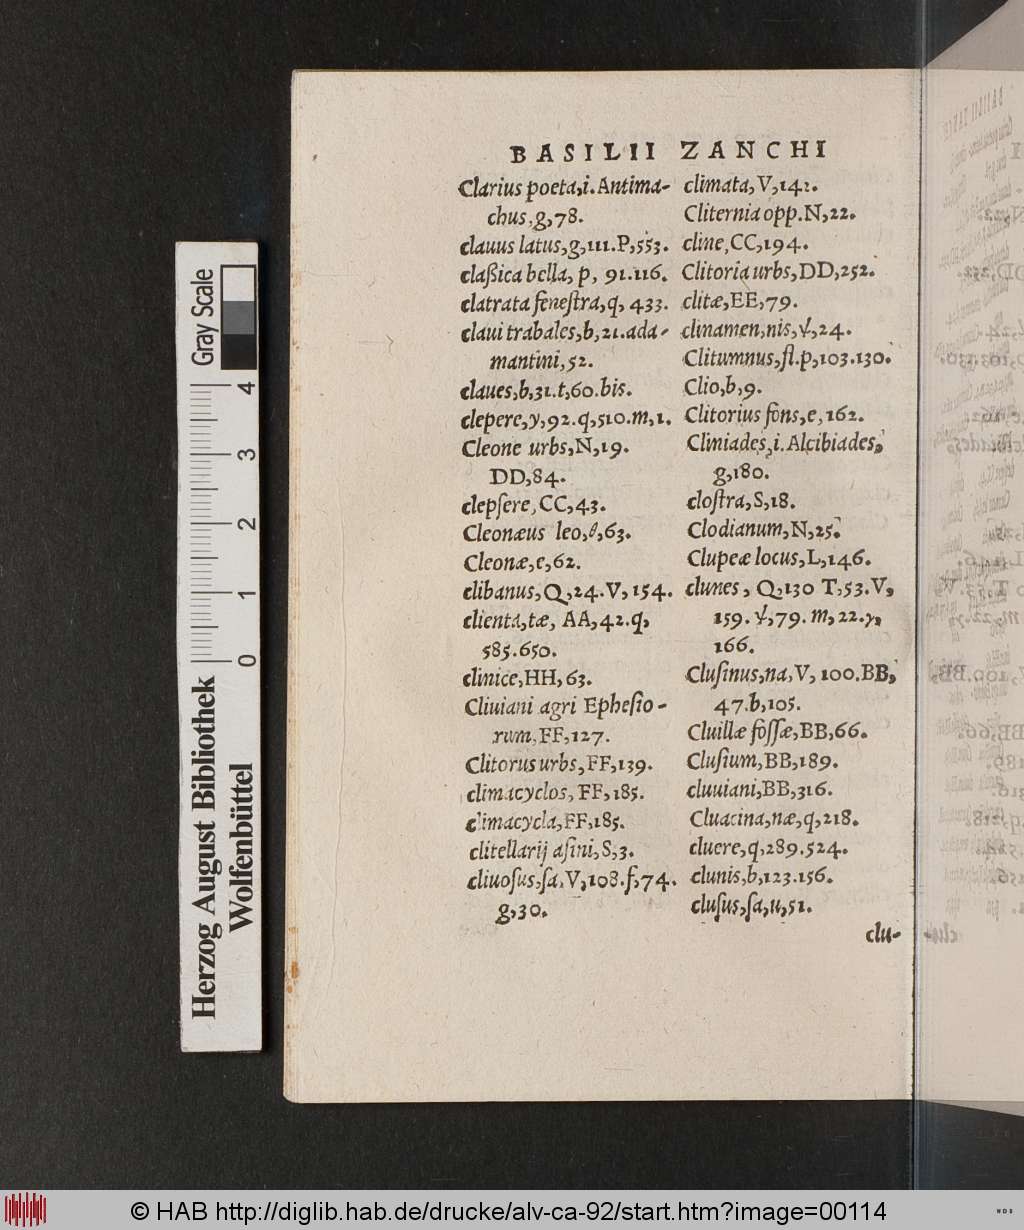 BASILII ZANCHI
Clarius poeta,i. Antima-
chus,g,78.
clauus latus,g,111.P,553.
claßica bella, p, 91.116.
clatrata feneſtra,q, 433.
claui trabales,b,21.ada-
mantini,52.
claues,b,31.t,60.bis.
clepere,y,92.q,510.m,1.
Cleone urbs,N,19.
DD,84.
clepſere,CC,43.
Cleonæus leo, 63.
Cleonæ,e,62.
clibanus,Q,24.V,154.
clienta,tæ, AA,42.q,
585.650.
clinice,HH,63.
Cliuiani agri Epheſio-
rum,FF,127.
Clitorus urbs,FF,139.
climacyclos, FF,185.
climacycla,FF,185.
clitellarij aſini,S,3.
cliuoſus,ſa,V,108.ſ,74.
g,30.
climata,V,142.
Cliternia opp.N,22.
cline,CC,194.
Clitoria urbs,DD,252.
clitæ,EE,79.
clinamen,nis,ψ,24.
Clitumnus,fl.p,103.130.
Clio,b,9.
Clitorius fons,e,162.
Cliniades,i. Alcibiades,
g,180.
cloſtra,S,18.
Clodianum,N,25.
Clupeæ locus,L,146.
clunes, Q,130 T,53.V,
159.ψ,79.m,22.γ,
166.
Cluſinus,na,V, 100.BB,
47.b,105.
Cluillæ foſſæ,BB,66.
Cluſium,BB,189.
cluuiani,BB,316.
Cluacina,næ,q,218.
cluere,q,289.524.
clunis,b,123.156.
cluſus,ſa,u,51.
clu-
Gray Scale
0 1 2 3 4
Herzog August Bibliothek
Wolfenbüttel
© HAB http://diglib.hab.de/drucke/alv-ca-92/start.htm?image=00114